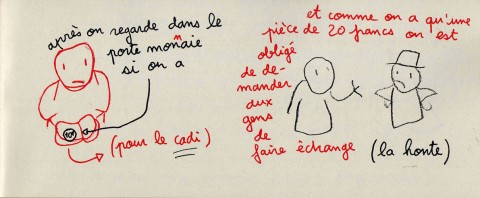 après on regarde dans le
porte monnaie
si on a
(pour le cadi)
et comme on a qu'une
pièce de 20 francs on est
obligé
de de-
mander
aux
gens
de
faire échange
(la honte)